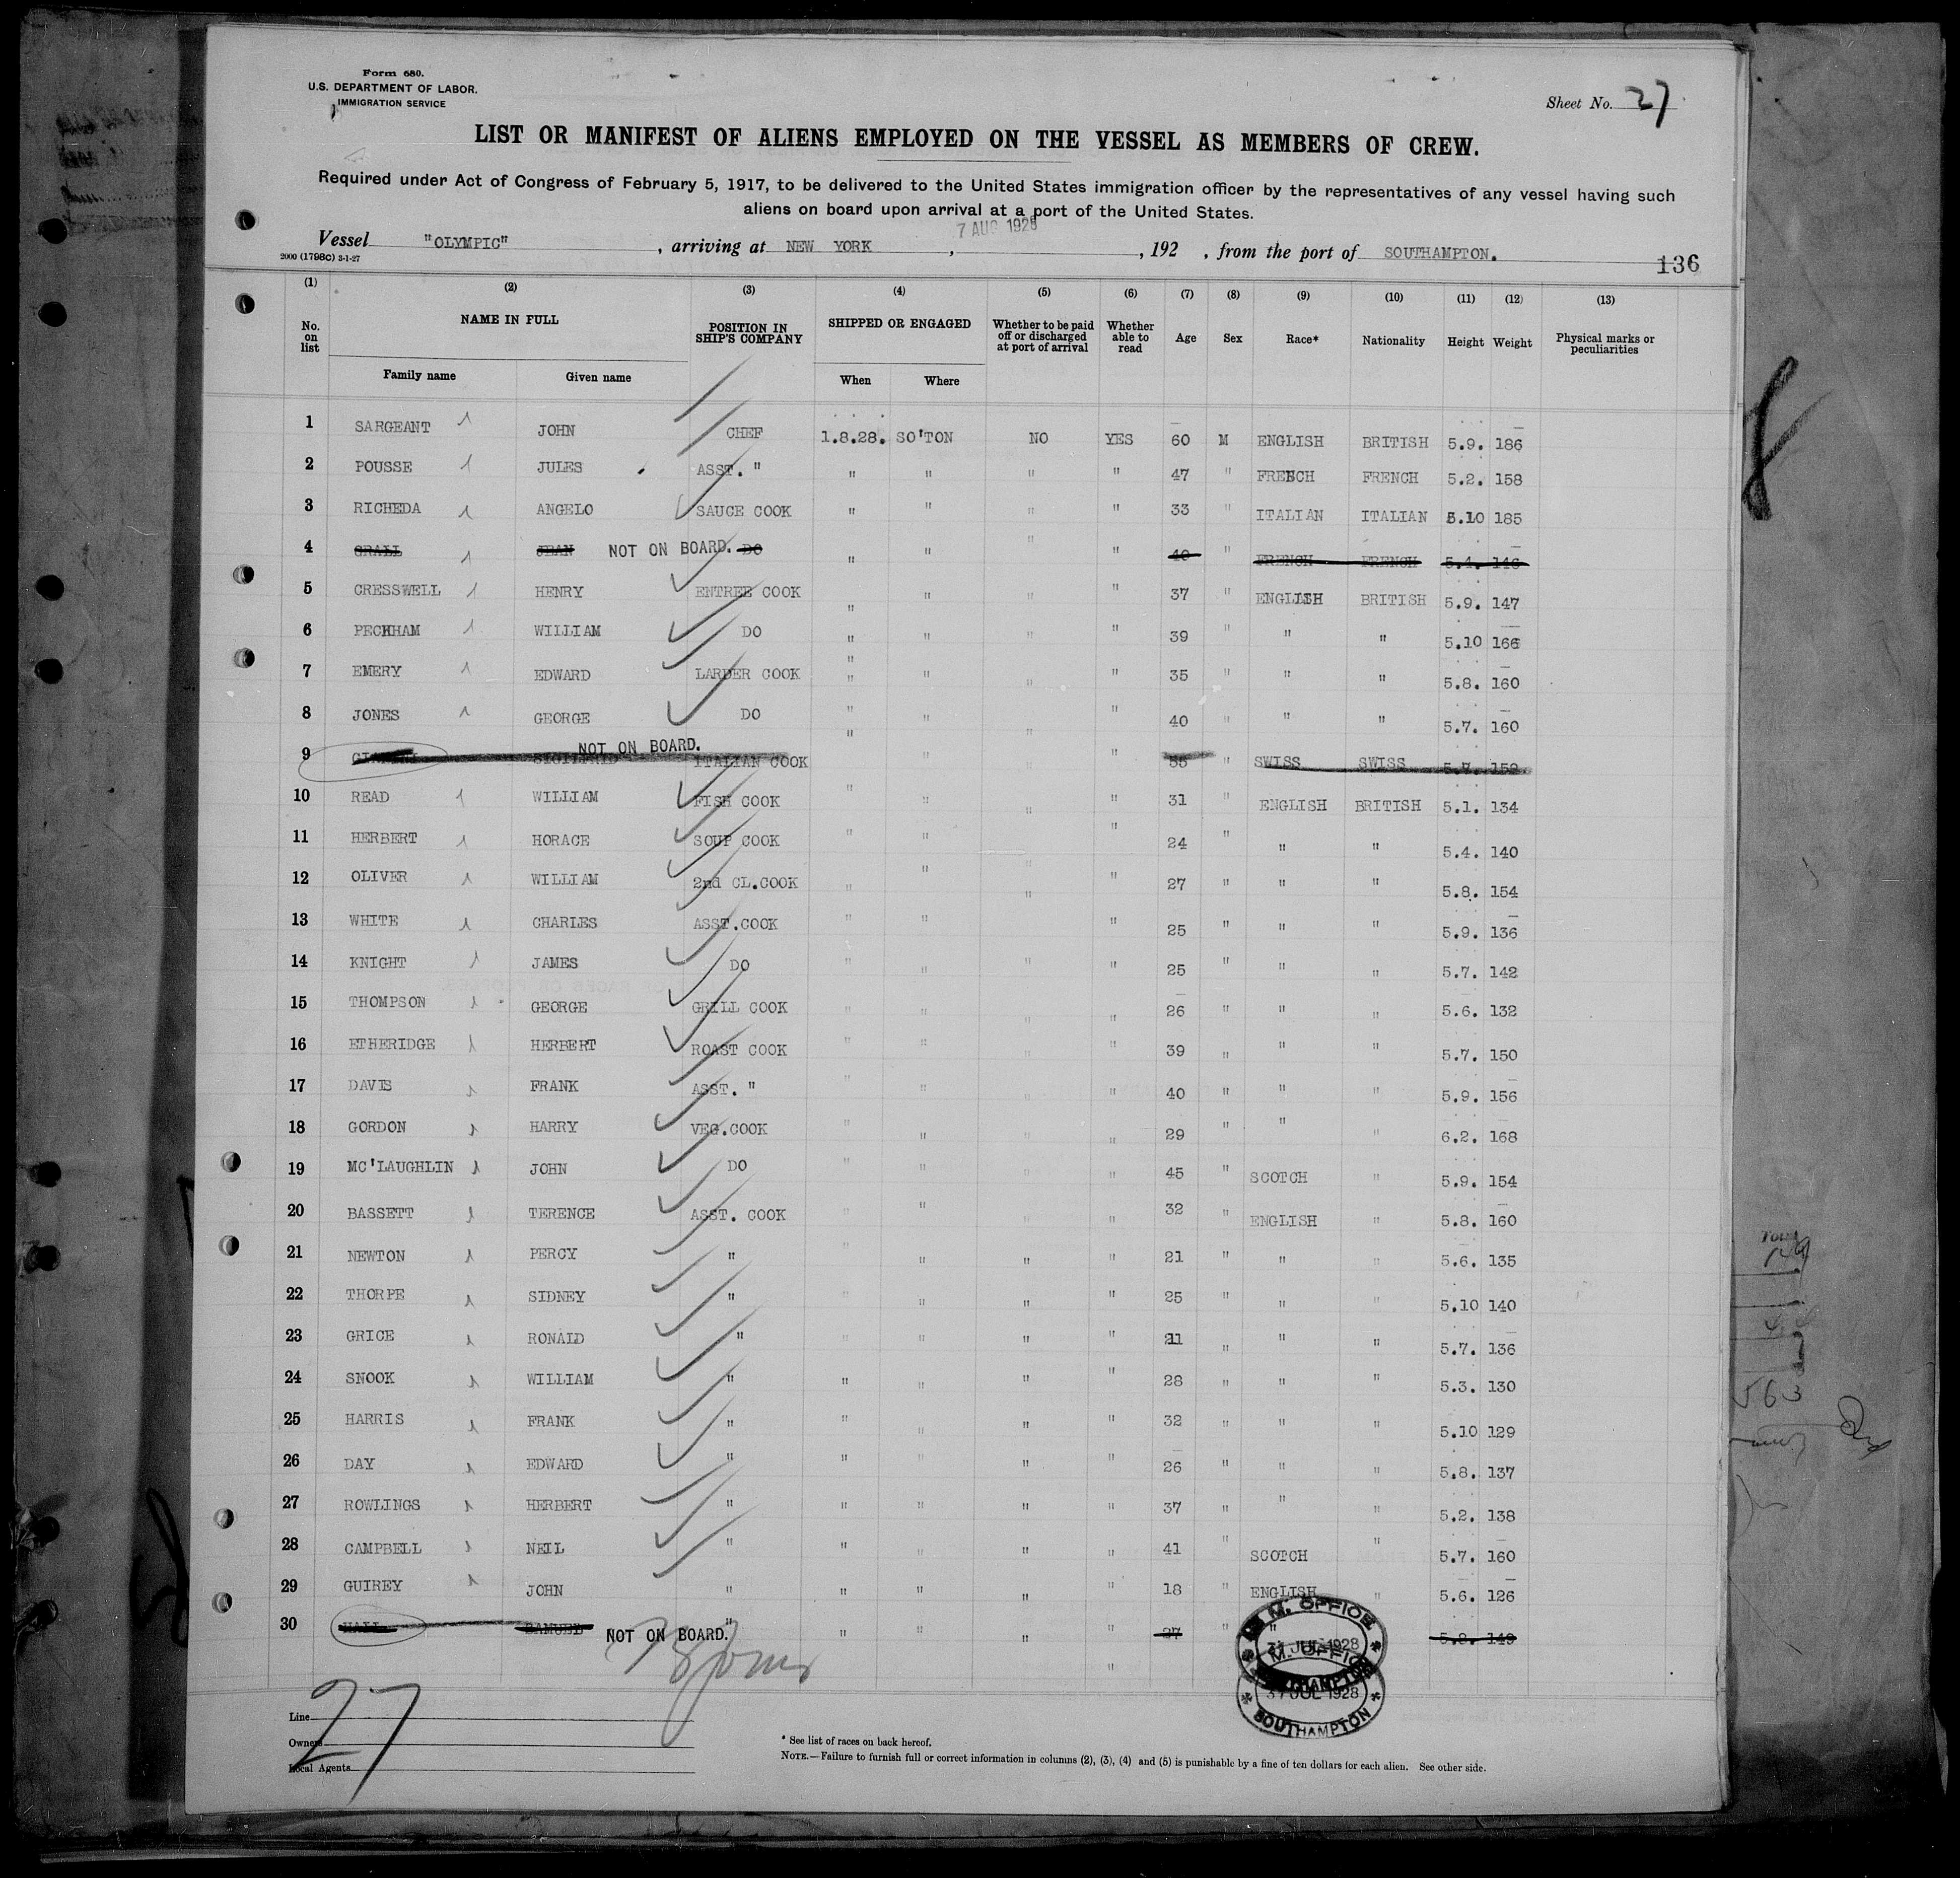 Form 680.
U.S. DEPARTMENT OF LABOR.
IMMIGRATION SERVICE
Sheet No. 27
LIST OR MANIFEST OF ALIENS EMPLOYED ON THE VESSEL AS MEMBERS OF CREW.
Required under Act of Congress of February 5, 1917, to be delivered to the United States immigration officer by the representatives of any vessel having such
aliens on board upon arrival at a port of the United States.
7 AUG 1928
Vessel "OLYMPIC", arriving at NEW YORK, , 192 , from the port of SOUTHAMPTON.
2000 (1798C) 3-1-27
136
(1) (2) (3) (4) (5) (6) (7) (8) (9) (10) (11) (12) (13)
No. on list NAME IN FULL POSITION IN SHIP'S COMPANY SHIPPED OR ENGAGED Whether to be paid off or discharged at port of arrival Whether able to read Age Sex Race* Nationality Height Weight Physical marks or peculiarities
Family name Given name When Where
1 SARGEANT JOHN CHEF 1.8.28. SO'TON NO YES 60 M ENGLISH BRITISH 5.9. 186
2 POUSSE JULES ASST. " " " " " 47 " FRENCH FRENCH 5.2. 158
3 RICHEDA ANGELO SAUCE COOK " " " " 33 " ITALIAN ITALIAN 5.10 185
4 GRALL JEAN NOT ON BOARD. DO " " " " 40 " FRENCH FRENCH 5.4. 146
5 CRESSWELL HENRY ENTREE COOK " " " " 37 " ENGLISH BRITISH 5.9. 147
6 PECKHAM WILLIAM DO " " " " 39 " " " 5.10 166
7 EMERY EDWARD LARDER COOK " " " " 35 " " " 5.8. 160
8 JONES GEORGE DO " " " 40 " " " 5.7. 160
9 NOT ON BOARD. ITALIAN COOK " " " " 55 " SWISS SWISS 5.7. 152
10 READ WILLIAM FISH COOK " " " " 31 " ENGLISH BRITISH 5.1. 134
11 HERBERT HORACE SOUP COOK " " " 24 " " " 5.4. 140
12 OLIVER WILLIAM 2nd CL.COOK " " " " 27 " " " 5.8. 154
13 WHITE CHARLES ASST.COOK " " " " 25 " " " 5.9. 136
14 KNIGHT JAMES DO " " " " 25 " " " 5.7. 142
15 THOMPSON GEORGE GRILL COOK " " " " 26 " " " 5.6. 132
16 ETHERIDGE HERBERT ROAST COOK " " " " 39 " " " 5.7. 150
17 DAVIS FRANK ASST. " " " " " 40 " " " 5.9. 156
18 GORDON HARRY VEG.COOK " " " " 29 " " " 6.2. 168
19 MC'LAUGHLIN JOHN DO " " " " 45 " SCOTCH " 5.9. 154
20 BASSETT TERENCE ASST. COOK " " " " 32 " ENGLISH " 5.8. 160
21 NEWTON PERCY " " " " " 21 " " " 5.6. 135
22 THORPE SIDNEY " " " " " 25 " " " 5.10 140
23 GRICE RONALD " " " " " 21 " " " 5.7. 136
24 SNOOK WILLIAM " " " " " 28 " " " 5.3. 130
25 HARRIS FRANK " " " " " 32 " " " 5.10 129
26 DAY EDWARD " " " " " 26 " " " 5.8. 137
27 ROWLINGS HERBERT " " " " " 37 " " " 5.2. 138
28 CAMPBELL NEIL " " " " " 41 " SCOTCH " 5.7. 160
29 GUIREY JOHN " " " " " 18 " ENGLISH " 5.6. 126
30 HALL SAMUEL NOT ON BOARD. " " " " " 27 " " 5.8. 149
M. OFFICE
31 JUL 1928
M. OFFICE
SOUTHAMPTON
31 JUL 1928
SOUTHAMPTON
27
Line
Owners
Local Agents
* See list of races on back hereof.
NOTE.—Failure to furnish full or correct information in columns (2), (3), (4) and (5) is punishable by a fine of ten dollars for each alien. See other side.
563